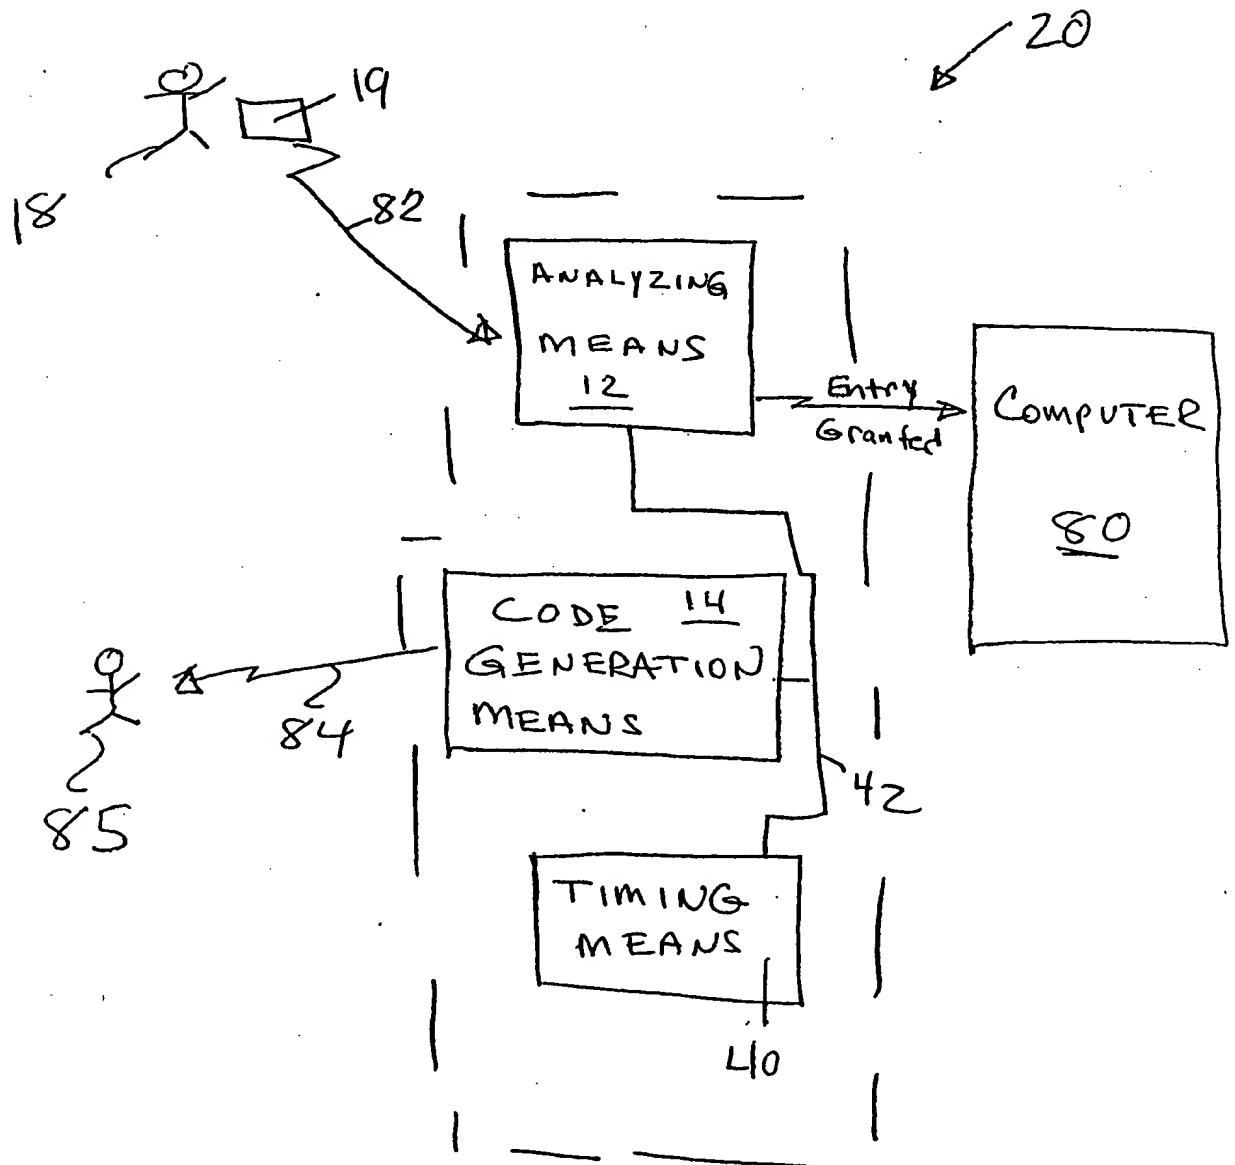 20
19
18
82
ANALYZING
MEANS
12
Entry
Granted
COMPUTER
80
CODE 14
GENERATION
MEANS
84
85
42
TIMING
MEANS
40